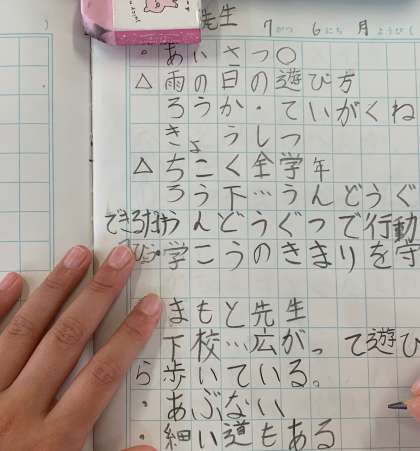 先生 7がつ 6にち 月ようび(
・あいさつ○
△雨の日の遊び方
ろうか・ていがくね
きょうしつ
△ちこく全学年
ろう下…うんどうぐ
うんどうぐつで行動
学こうのきまりを守
まもと先生
下校…広がって遊び
ら歩いている。
・あぶない
・細い道もある